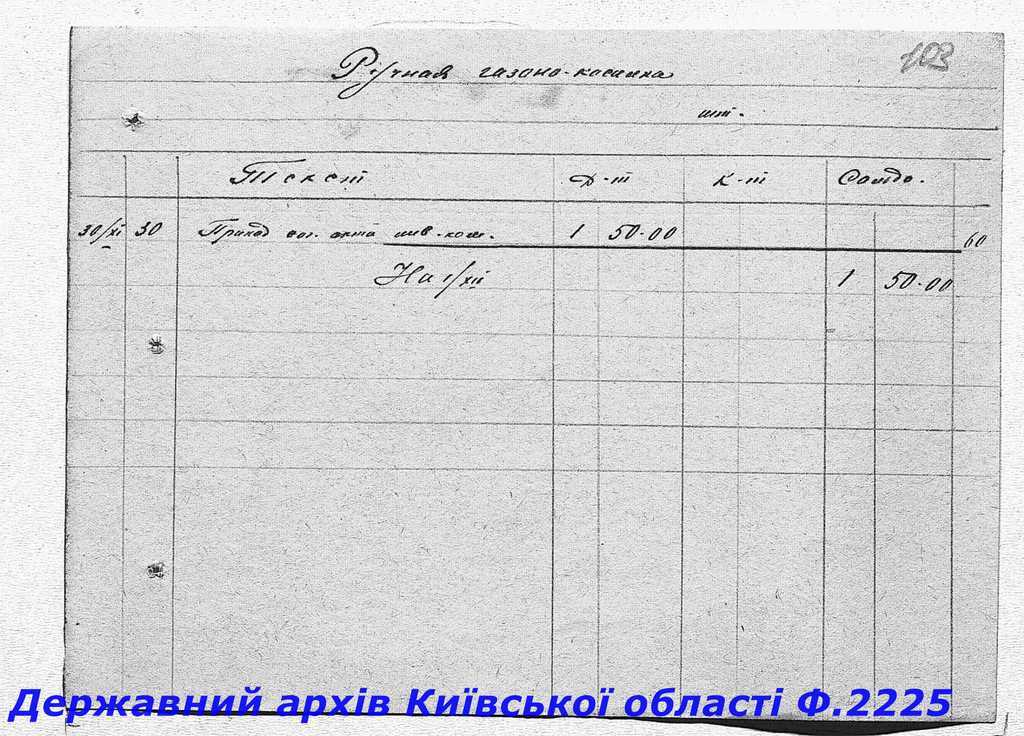 103
Ручная газоно-косилка
шт.
Текст Д-т К-т Сальдо.
30/XI 30 Приход сог. акта инв-ком. 1 50-00 60
На 1/XII 1 50-00
Державний архів Київської області Ф.2225